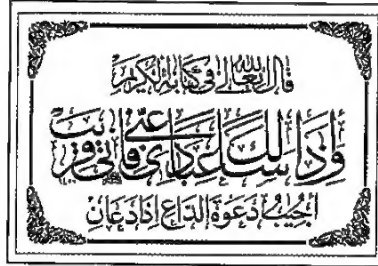 قال الله تعالى في كتابه الكريم
وَإِذَا سَأَلَكَ عِبَادِي عَنِّي فَإِنِّي قَرِيبٌ
أُجِيبُ دَعْوَةَ الدَّاعِ إِذَا دَعَانِ